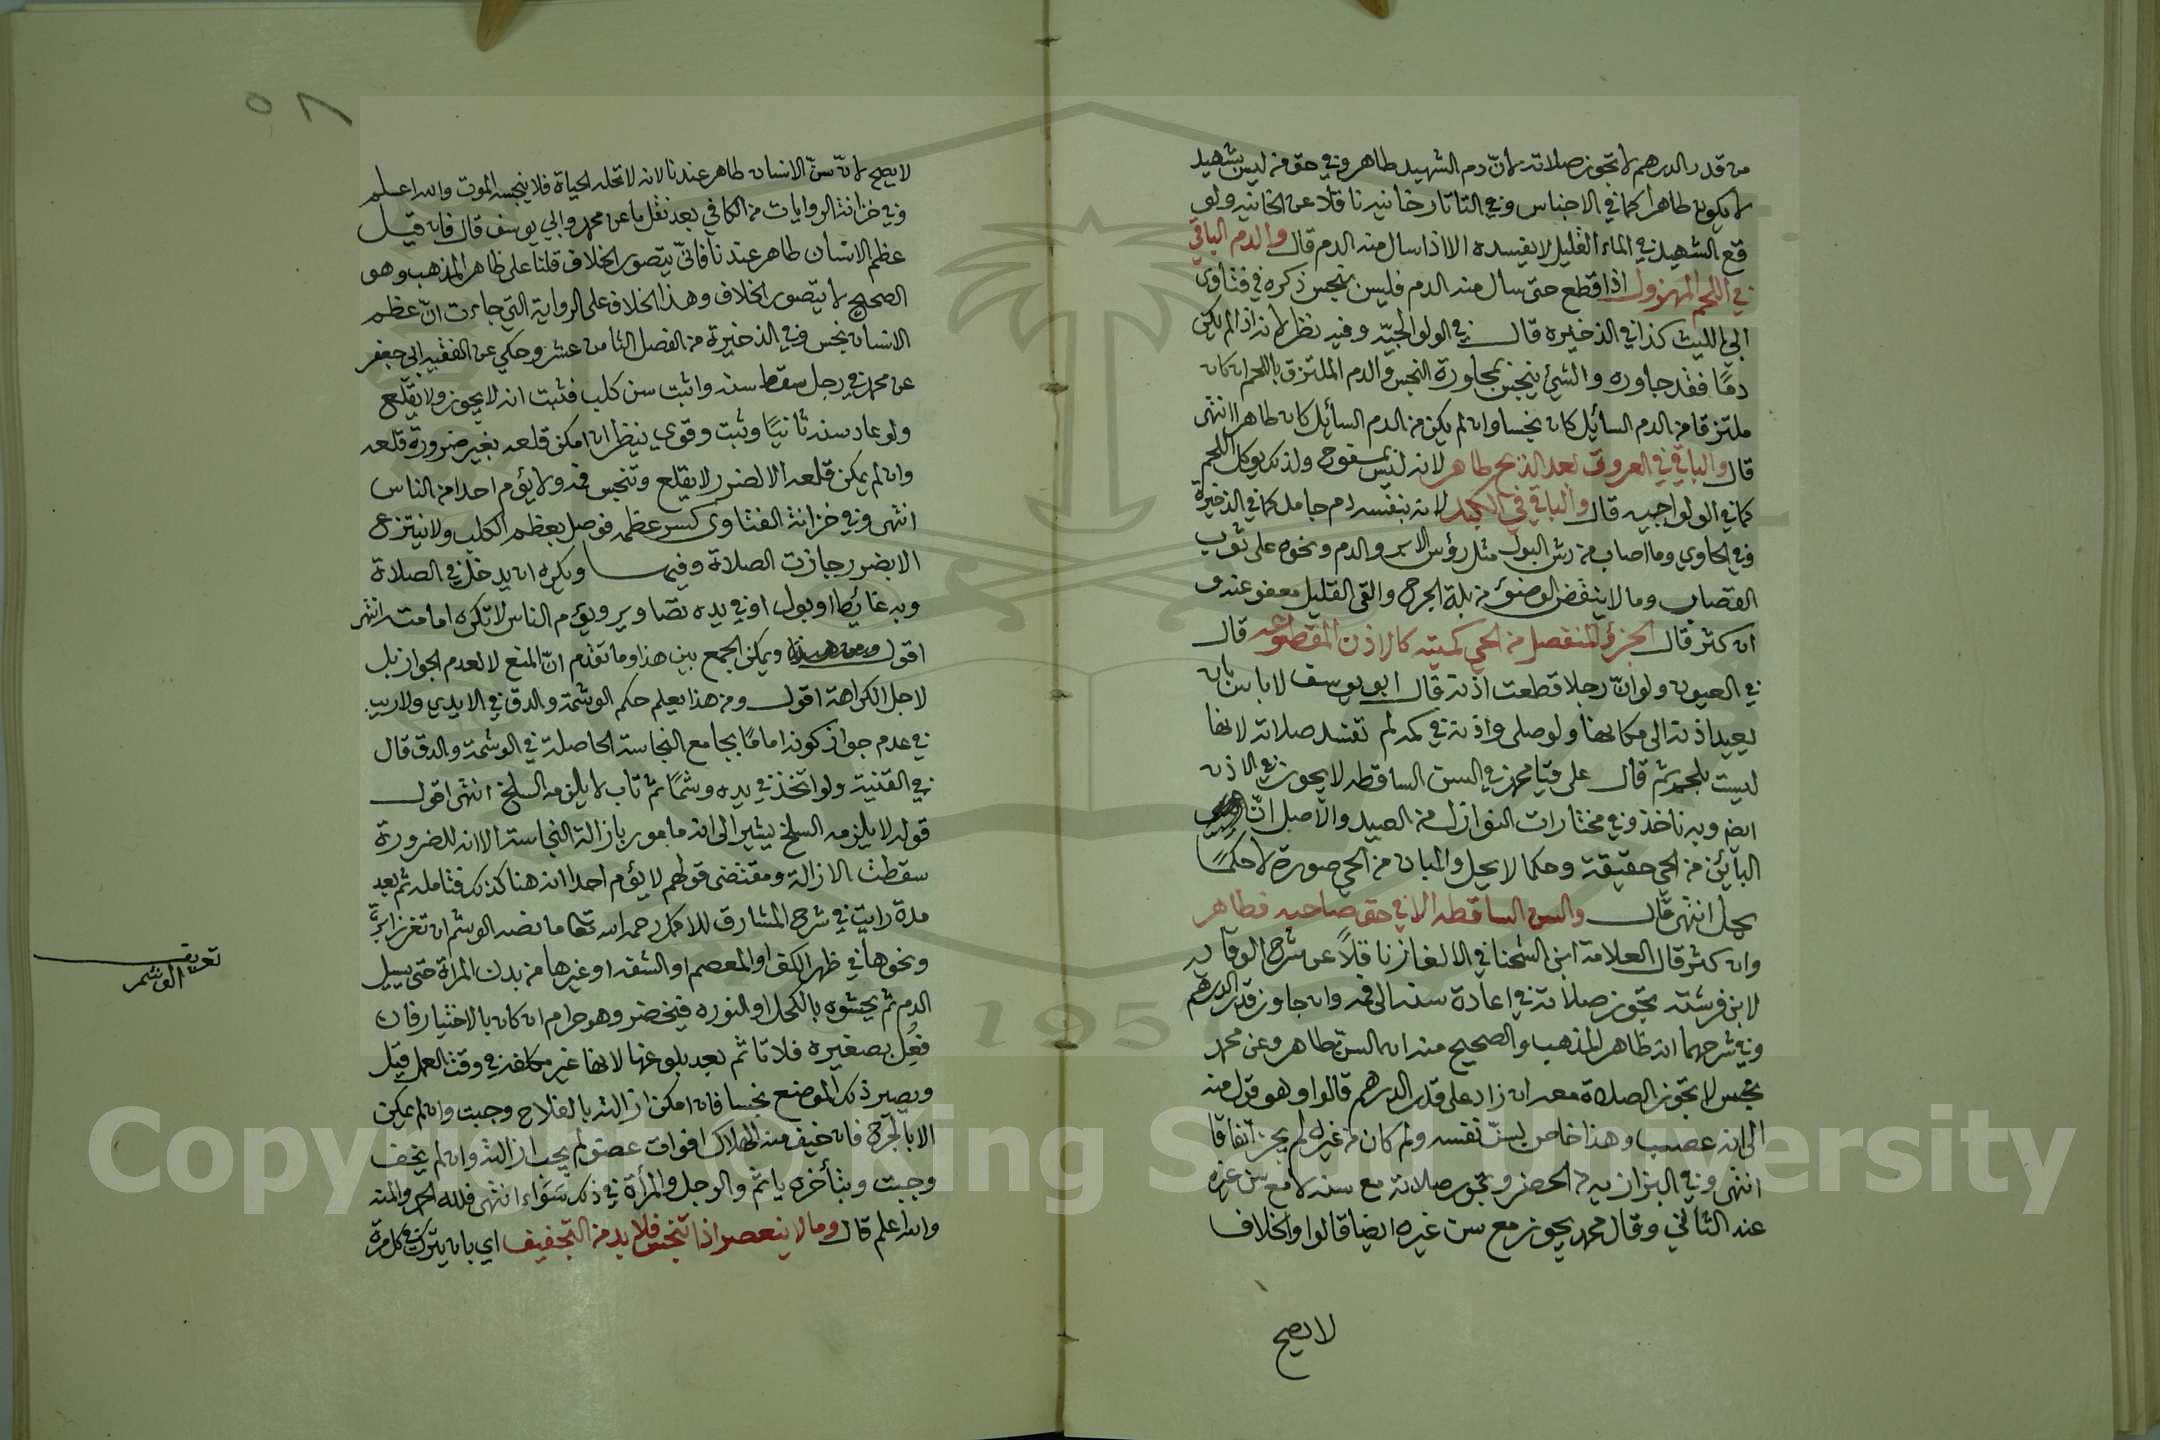 من قدر الدرهم لا تجوز صلاته لانّ دم الشهيد طاهر وفي حق من ليس بشهيد
لا يكون طاهرا كما في الاجناس وفي التاتارخانيه ناقلا عن الخانيه ولو
وقع الشهيد في الماء القليل لا يفسده الا اذا سال منه الدم قال والدم الباقي
في اللحم المهزول اذا قطع حتى سال منه الدم فليس بنجس ذكره في فتاوى
ابي الليث كذا في الذخيره قال في الولوالجيّه وفيه نظر لانه اذا لم يكن
دمًا فقد جاوره والشيئ ينجس بمجاورة النجس والدم الملتزق باللحم ان كان
ملتزقا من الدم السائل كان نجسا وان لم يكن من الدم السائل كان طاهرا انتهى
قال والباقي في العروق بعد الذبح طاهر لانه ليس بمسفوح ولذلك يوكل اللحم
كما في الولوالجيه قال والباقي في الكبد لانه بنفسه دم جامد كما في الذخيرة
وفي الحاوي وما اصاب من رش البول مثل رؤس الابر والدم ونحوه على ثوب
القصاب وما لا ينقض الوضوء من بلة الجرح والقى القليل معفو عنه و
ان كثر قال الجزؤ المنفصل من الحي كميته كالاذن المقطوعه قال
في العيون ولو انّ رجلا قطعت اذنه قال ابو يوسف لا باس بان
يعيد اذنه الى مكانها ولو صلى واذنه في كمه لم تفسد صلاته لانها
ليست بلحم ثم قال على قياس محمد في السن الساقطه لا يجوز في الاذن
ايضا وبه ناخذ وفي مختارات النوازل من الصيد والاصل انّ
البائن من الحي حقيقة وحكما لا يحل والمبان من الحي صورة لا حكمًا
يحل انتهى قال والسن الساقطه الا في حق صاحبه فطاهر
وان كثر قال العلامة ابن الشحنا في الالغاز ناقلاً عن شرح الوقايه
لابن فرشته تجوز صلاته في اعادة سنه الى فمه وان جاوز قدر الدرهم
وفي شرحهما انه ظاهر المذهب والصحيح منه ان السنّ طاهر وعن محمد
نجس لا تجوز الصلاة معه ان زاد على قدر الدرهم قالوا وهو قول منه
الى انه عصب وهذا خاص بسنّ نفسه ولو كان من غيره لم يجز اتفاقا
انتهى وفي البزازيه من الحضر وتجوز صلاته مع سنه لا مع سن غيره
عند الثاني وقال محمد يجوز مع سن غيره ايضا قالوا والخلاف
لا يصح
٥٨
لا يصح لانّ سنّ الانسان طاهر عندنا لانه لا تحله الحياة فلا ينجسه الموت والله اعلم
وفي خزانة الروايات من الكافي بعد نقل ما عن محمد وابي يوسف قال فان قيل
عظم الانسان طاهر عندنا فانّى يتصور الخلاف قلنا على ظاهر المذهب وهو
الصحيح لا يتصور الخلاف وهذا الخلاف على الرواية التي جاءت انّ عظم
الانسان نجس وفي الذخيرة من الفصل الثامن عشر وحكي عن الفقيه ابي جعفر
عن محمد في رجل سقط سنه واثبت سن كلب فثبت انه لا يجوز ولا يقلع
ولو عاد سنه ثانيًا وثبت وقوي ينظر ان امكن قلعه بغير ضرورة قلعه
وان لم يمكن قلعه الا لضرر لا يقلع وتنجس فمه ولا يؤم احدا من الناس
انتهى وفي خزانة الفتاوى كسر عظمه فوصل بعظم الكلب ولا ينتزع
الا بضرر جازت الصلاة وفيها ويكره ان يدخل في الصلاة
وبه غائط او بول او في يده تصاوير ويؤم الناس لا تكره امامته انتهى
اقول ويمكن الجمع بين هذا وما تقدم انّ المنع لا لعدم الجواز بل
لاجل الكراهة اقول ومن هذا يعلم حكم الوشمة والدق في الايدي ولا ريب
في عدم جواز كونه امامًا بجامع النجاسة الحاصلة في الوشمة والدق قال
في القنية ولو اتخذ في يده وشمًا ثم تاب لا يلزمه السلخ انتهى اقول
قوله لا يلزمه السلخ يشير الى انه مامور بازالة النجاسة الا انه للضرورة
سقطت الازالة ومقتضى قولهم لا يؤم احدا انه هنا كذلك فتامله ثم بعد
مدة رايت في شرح المشارق للاكمل رحمه الله تعالى ما نصه الوشم ان تغرز ابرةً
ونحوها في ظهر الكف او المعصم او الشفه او غيرها من بدن المراة حتى يسيل
الدم ثم يحشوه بالكحل او النوره فيخضر وهو حرام ان كان بالاختيار فان
فعل بصغيره فلا تاثم بعد بلوغها لانها غير مكلفة في وقت العمل قيل
ويصير ذلك الموضع نجسا فان امكن ازالته بالعلاج وجبت وان لم يمكن
الا بالجرح فان خيف منه الهلاك او فوات عضو لم يجب ازالته وان لم يخف
وجبت وبتأخره ياثم والرجل والمرأة في ذلك سَوَاء انتهى فلله الحمد والمنه
والله اعلم قال وما لا ينعصر اذا تنجس فلا بد من التجفيف اي بان يترك في كل مرة
تعريف
الوشم
Copyright © King Saud University
1957